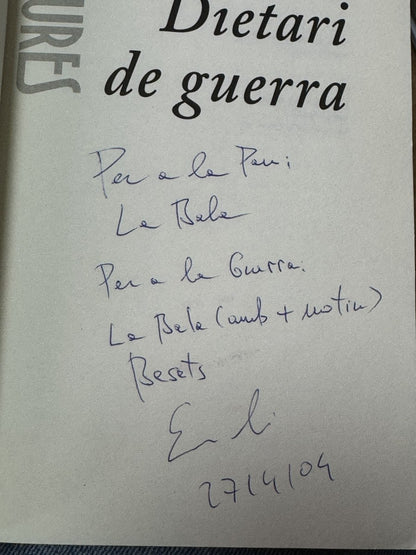 URES
Dietari
de guerra
Per a la Pau:
La Bala
Per a la Guerra:
La Bala (amb + motiu)
Besets
27/4/04